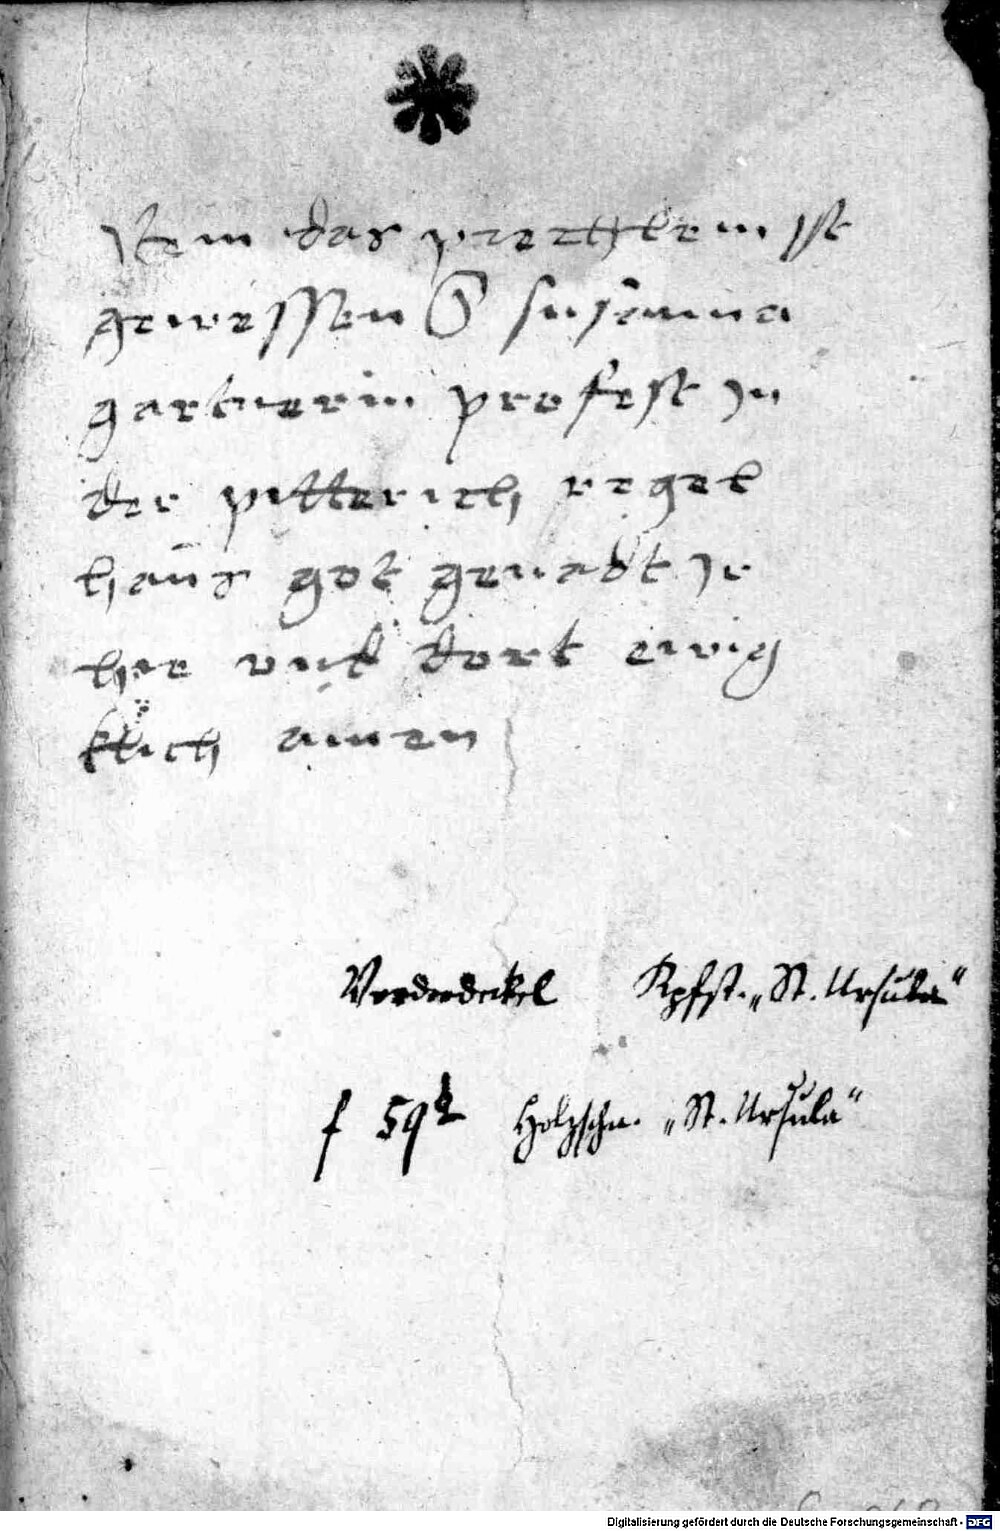 Item das puechlein ist
gewessen S susanna
gartnerin profest jn
der pitterich regel
haus got genadt jr
hie vnd dort ewig
klich amen
Vorderdeckel Kpfst. „St. Ursula“
f 59 Holzschn. „St. Ursula“
Digitalisierung gefördert durch die Deutsche Forschungsgemeinschaft - DFG